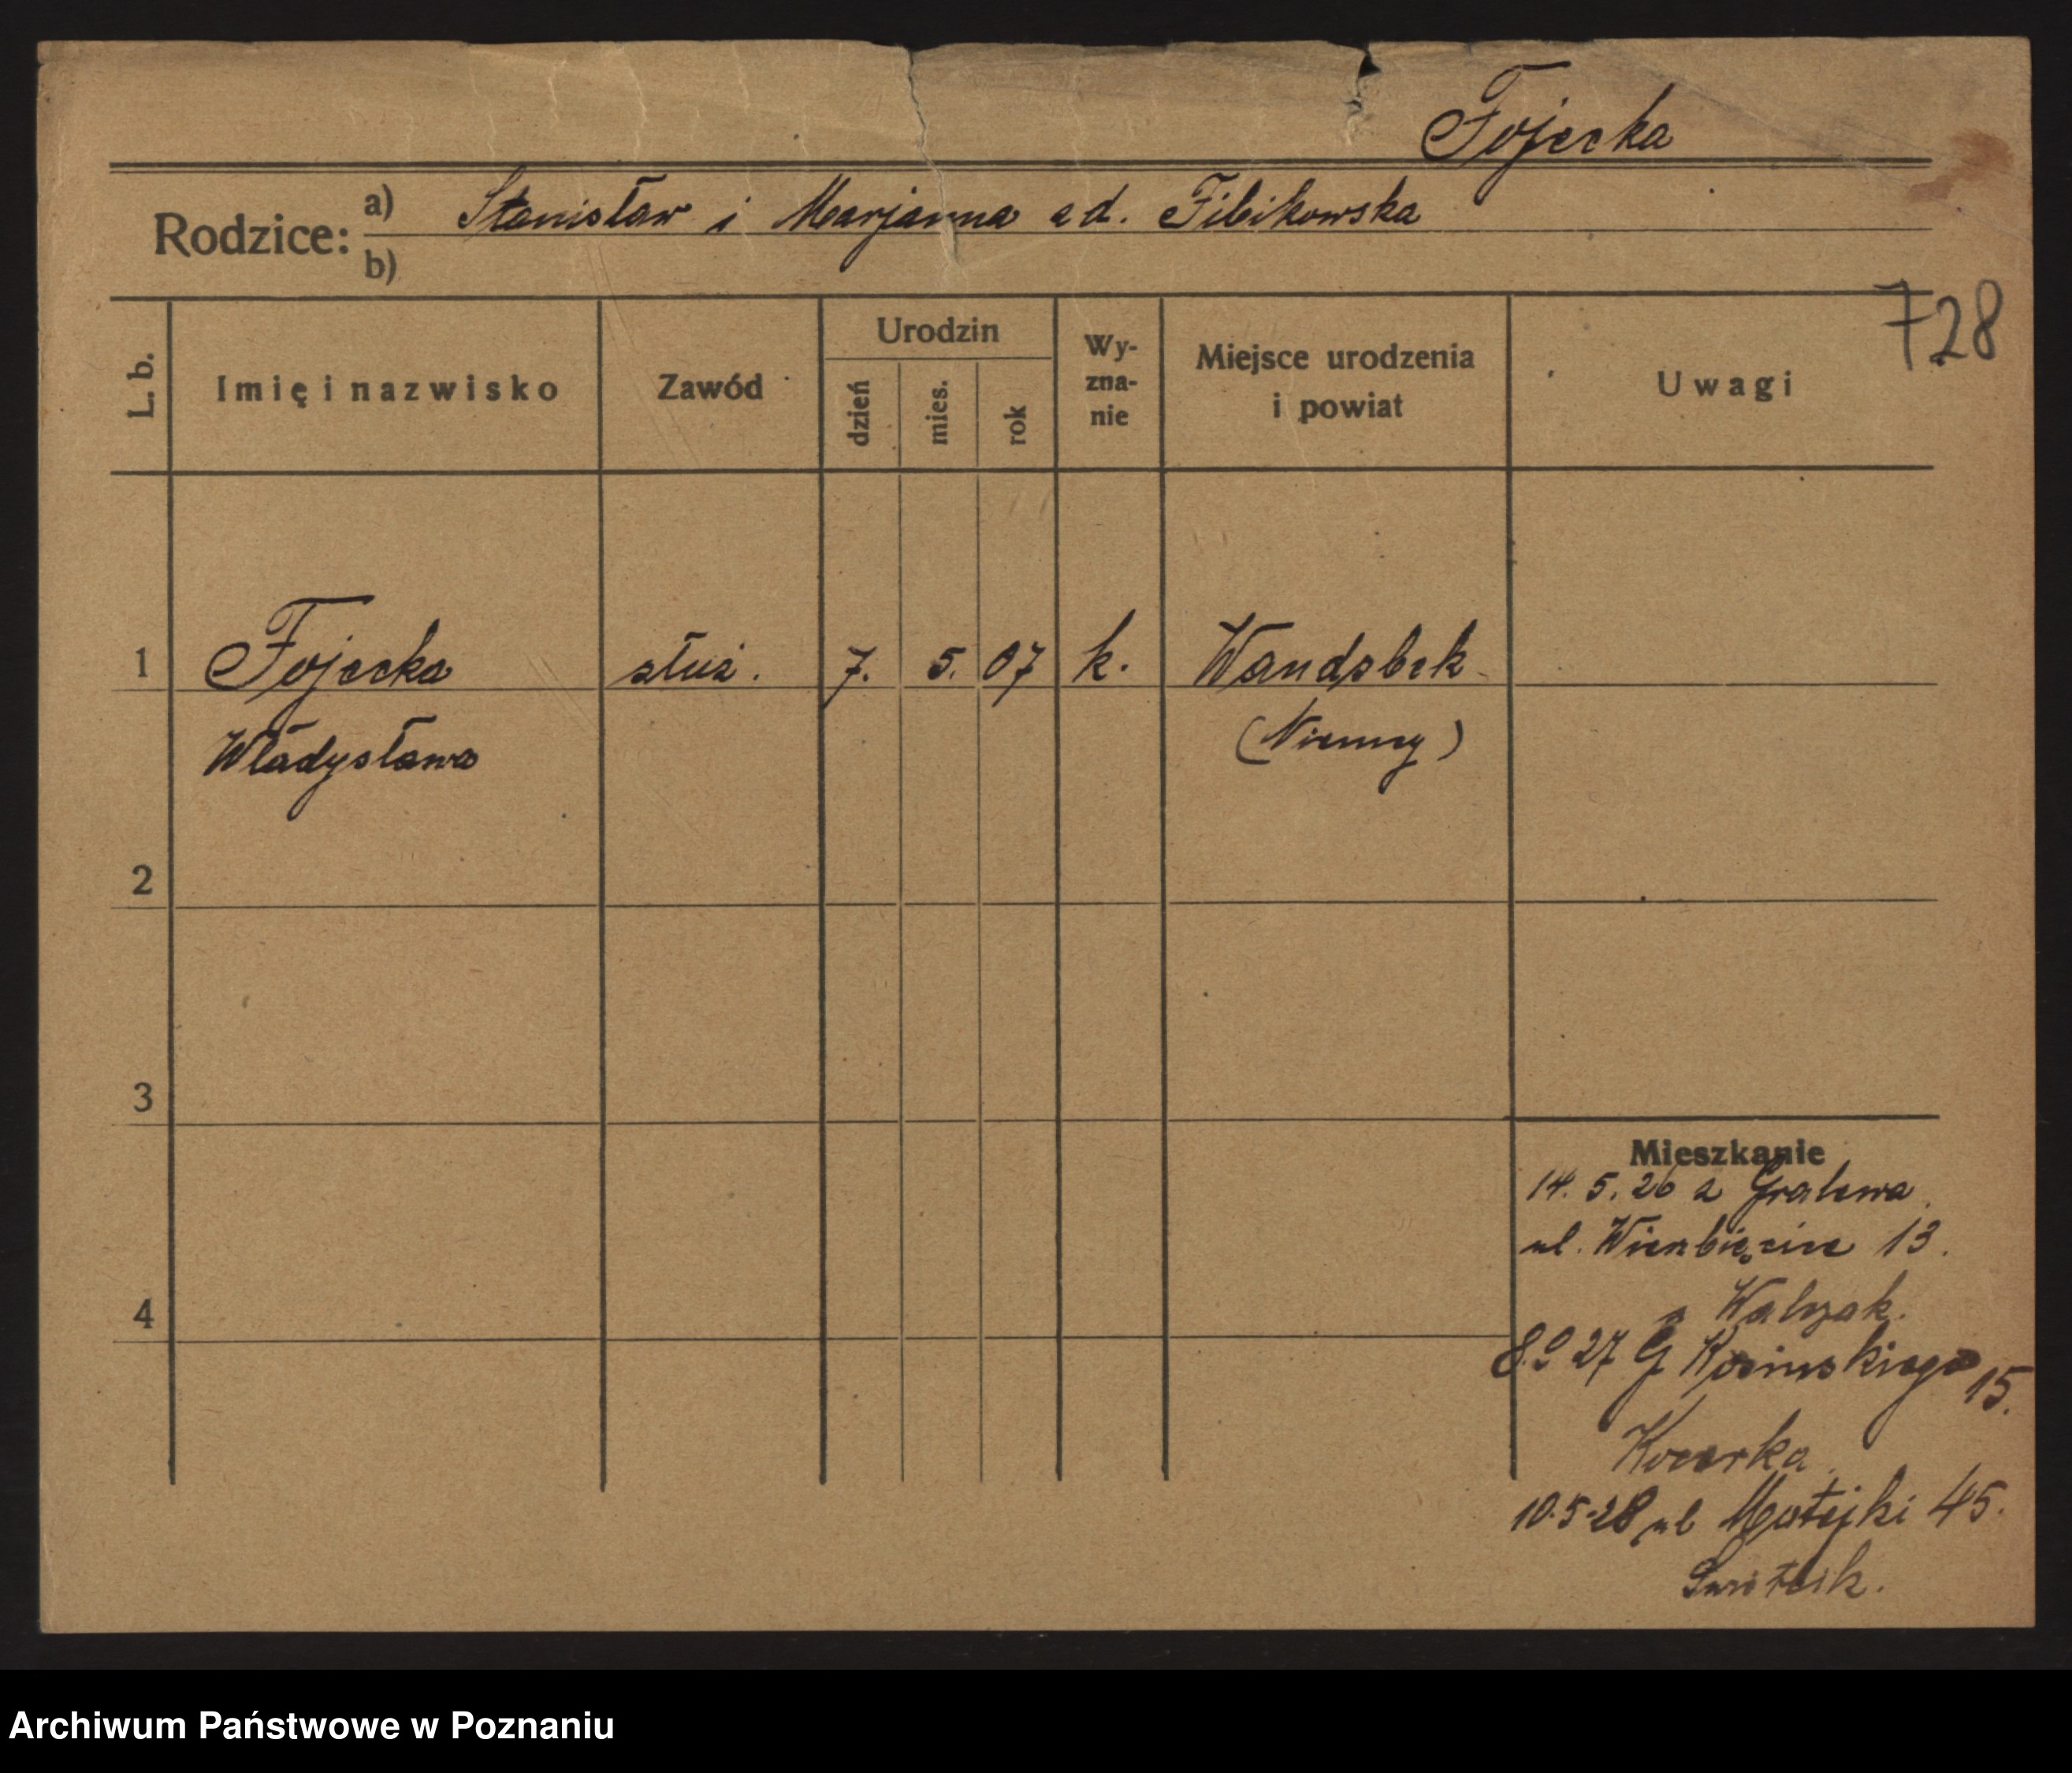 Fojecka
Rodzice: a) Stanisław i Marjanna zd. Filikowska
b)
728
L. b. Imię i nazwisko Zawód Urodzin dzień mies. rok Wy-zna-nie Miejsce urodzenia i powiat Uwagi
1 Fojecka służ. 7. 5. 07 k. Wandsbek
Władysława (Niemcy)
2
3
Mieszkanie
14. 5. 26 z Gralewa
ul. Wierzbięcice 13.
4
Walczak.
8.9 27 G Kosinskiego 15.
Kocerka
10.5.28 ul Matejki 45.
Archiwum Państwowe w Poznaniu